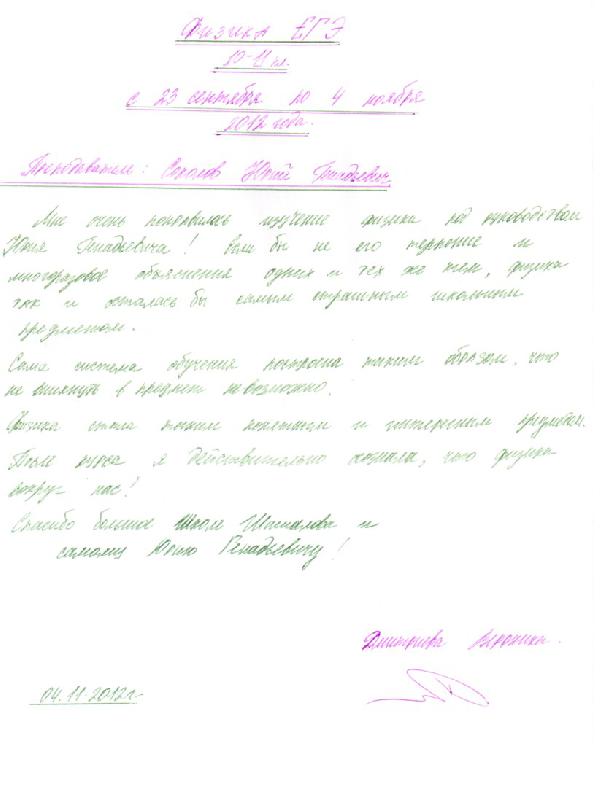 Физика ЕГЭ
10-11 кл.
с 23 сентября по 4 ноября
2012 года.
Преподаватель: Соколов Юрий Генадьевич
Мне очень понравилось изучение физики под руководством
Юрия Генадьевича! Если бы не его терпение и
многоразовое объяснения одних и тех же тем, физика
так и осталась бы самым страшным школьным
предметом.
Сама система обучения построена таким образом, что
не вникнуть в предмет невозможно.
Физика стала понятным и интересным предметом.
После курса я действительно осознала, что физика
вокруг нас!
Спасибо большое Школе и
самому Юрию Генадьевичу!
Дмитриева Вероника.
04.11.2012г